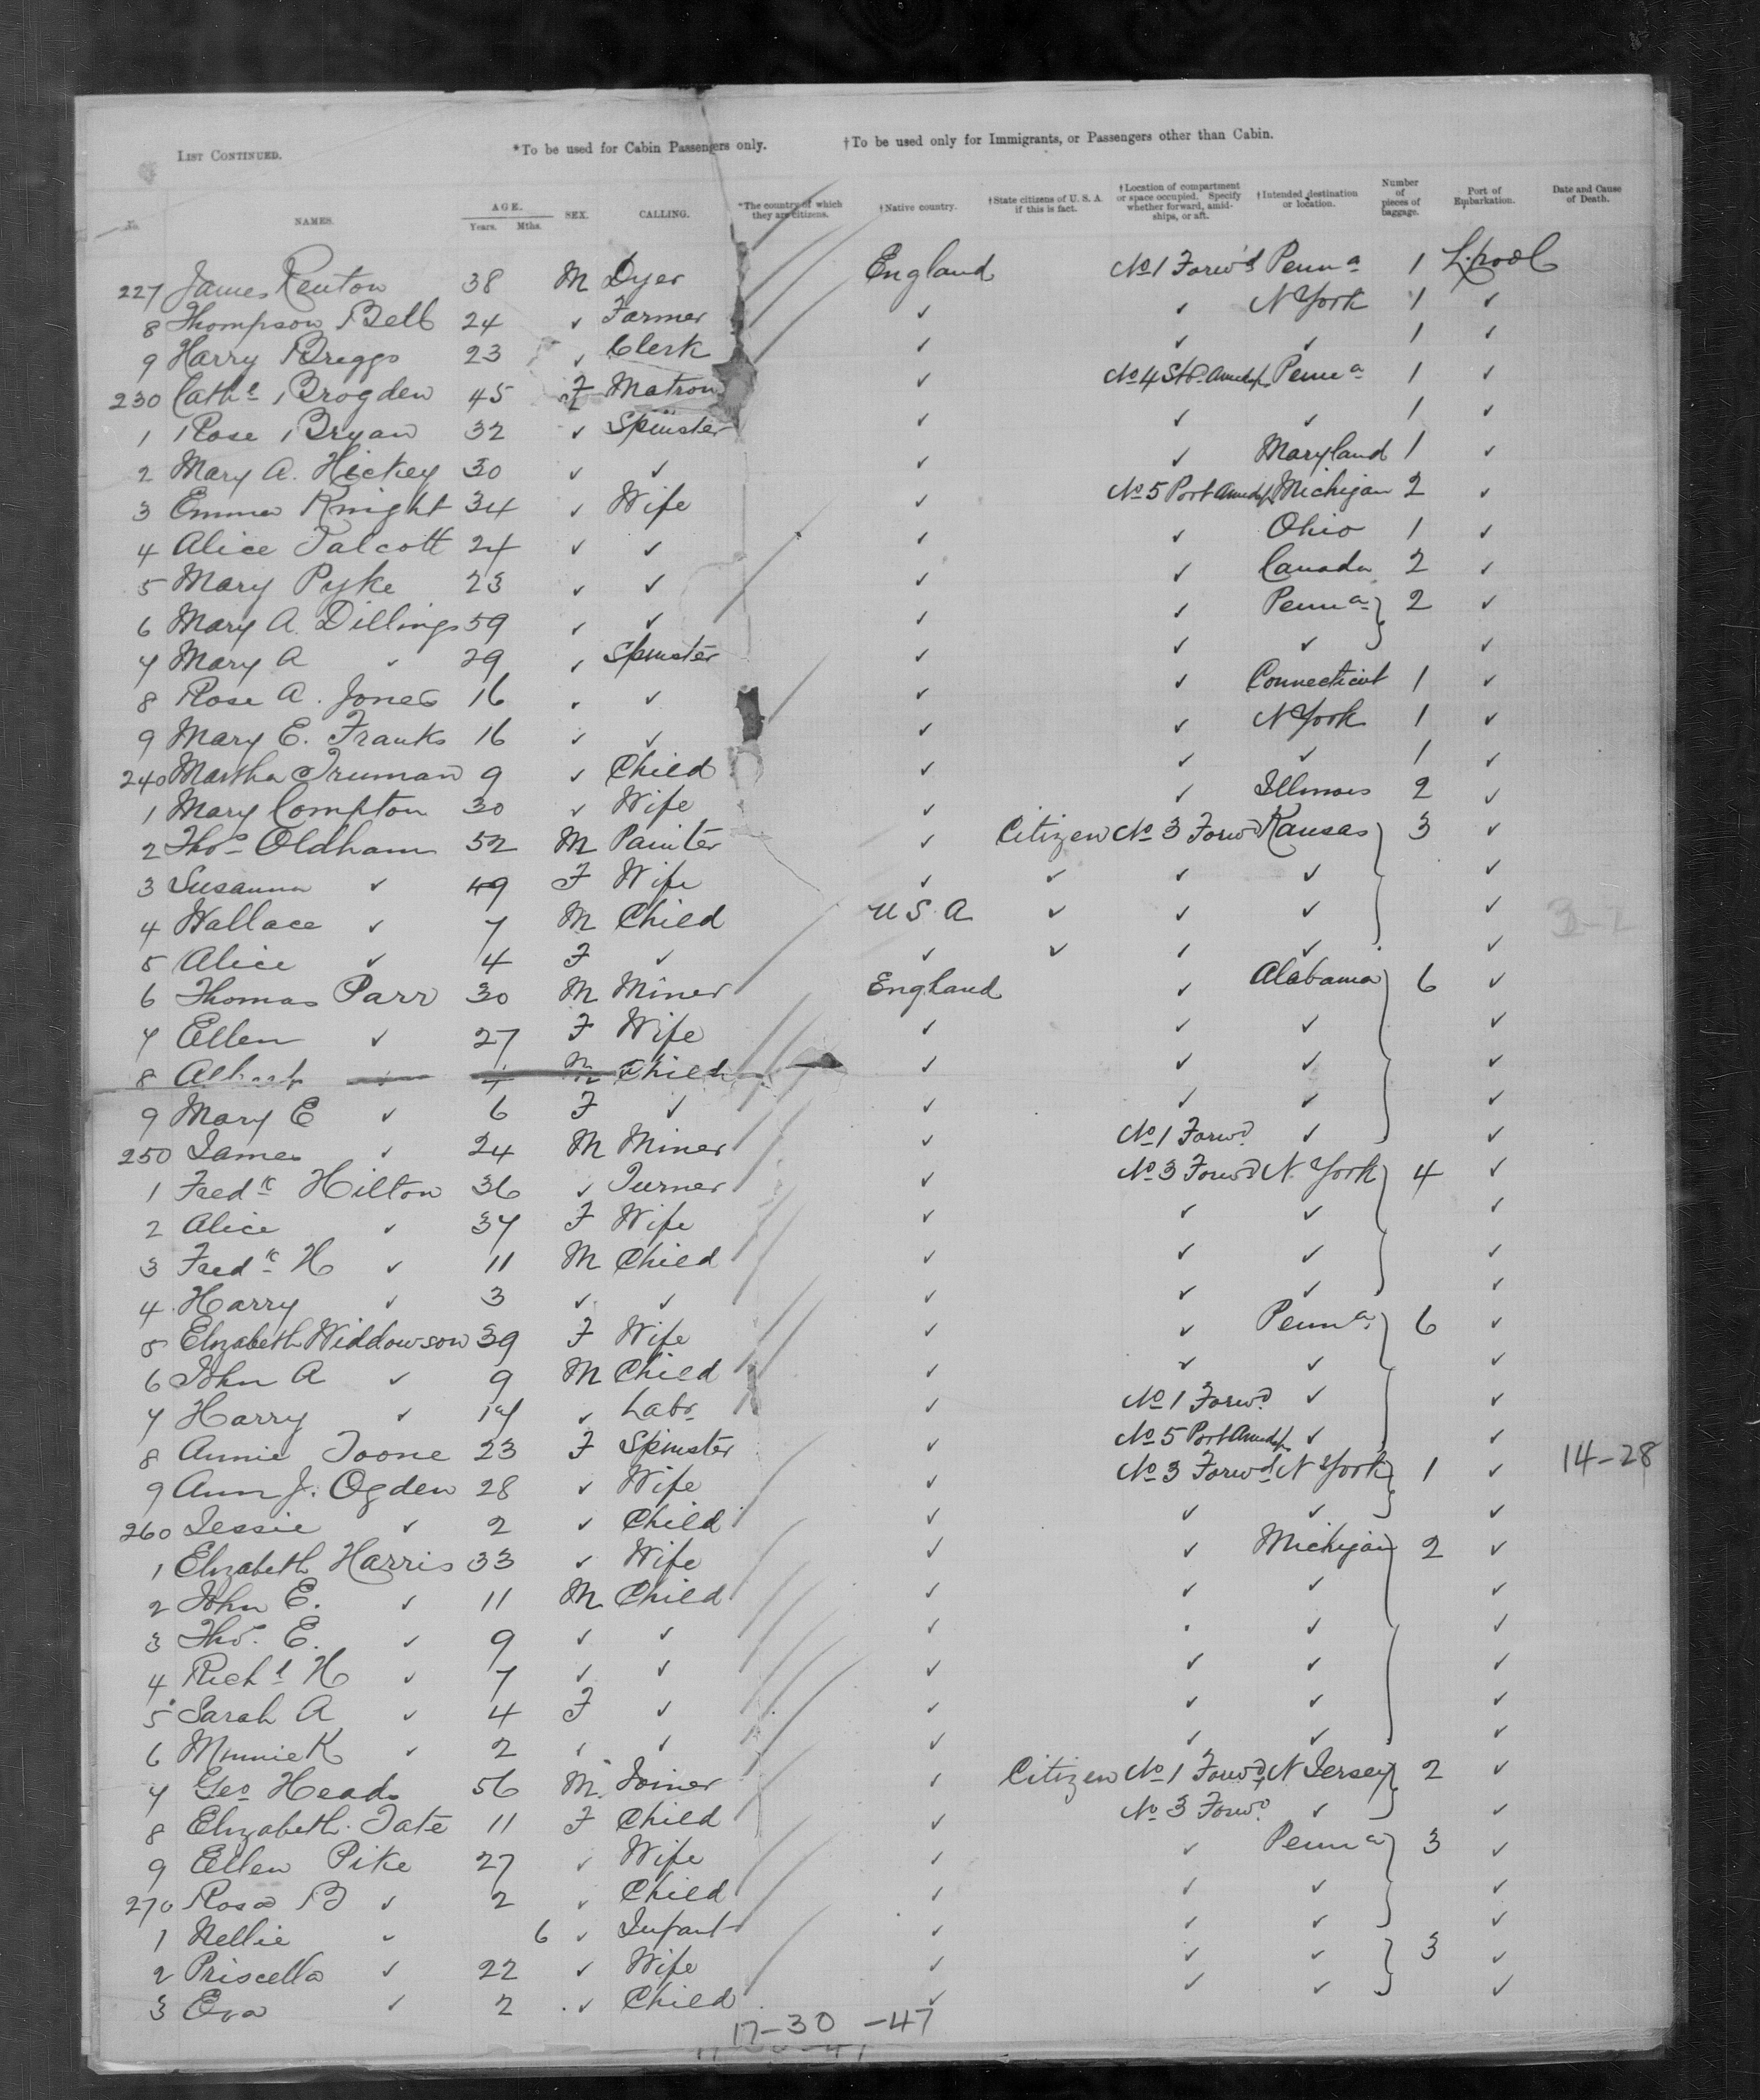 LIST CONTINUED. *To be used for Cabin Passengers only. †To be used only for Immigrants, or Passengers other than Cabin.
No. NAMES. AGE. Years. Mths. SEX. CALLING. *The country of which they are citizens. †Native country. †State citizens of U. S. A. if this is fact. †Location of compartment or space occupied. Specify whether forward, amidships, or aft. †Intended destination or location. Number of pieces of baggage. Port of Embarkation. Date and Cause of Death.
227 James Renton 38 M Dyer England No 1 Forwd Penna 1 L.pool
8 Thompson Bell 24 ✓ Farmer ✓ ✓ N York 1 ✓
9 Harry Briggs 23 ✓ Clerk ✓ ✓ ✓ 1 ✓
230 Cathe Brogden 45 F Matron ✓ No 4 Stb. Amids. Penna 1 ✓
1 Rose Bryan 32 ✓ Spinster ✓ ✓ ✓ 1 ✓
2 Mary A. Hickey 30 ✓ ✓ ✓ ✓ Maryland 1 ✓
3 Emma Knight 34 ✓ Wife ✓ No 5 Port Amids. Michigan 2 ✓
4 Alice Talcott 24 ✓ ✓ ✓ ✓ Ohio 1 ✓
5 Mary Pyke 23 ✓ ✓ ✓ ✓ Canada 2 ✓
6 Mary A. Dillings 59 ✓ ✓ ✓ ✓ Penna } 2 ✓
7 Mary A ✓ 29 ✓ Spinster ✓ ✓ ✓ ✓
8 Rose A. Jones 16 ✓ ✓ ✓ ✓ Connecticut 1 ✓
9 Mary E. Franks 16 ✓ ✓ ✓ ✓ N York 1 ✓
240 Martha Truman 9 ✓ Child ✓ ✓ ✓ 1 ✓
1 Mary Compton 30 ✓ Wife ✓ ✓ Illinois 2 ✓
2 Thos Oldham 52 M Painter ✓ Citizen No 3 Forwd Kansas } 3 ✓
3 Susanna ✓ 49 F Wife ✓ ✓ ✓ ✓ ✓
4 Wallace ✓ 7 M Child U S. A ✓ ✓ ✓ ✓
5 Alice ✓ 4 F ✓ ✓ ✓ ✓ ✓ ✓
6 Thomas Parr 30 M Miner England ✓ Alabama } 6 ✓
7 Ellen ✓ 27 F Wife ✓ ✓ ✓ ✓
8 Albert ✓ M Child ✓ ✓ ✓ ✓
9 Mary E ✓ 6 F ✓ ✓ ✓ ✓ ✓
250 James ✓ 24 M Miner ✓ No 1 Forwd ✓ ✓
1 Fredk Hilton 36 ✓ Turner ✓ No 3 Forwd N. York } 4 ✓
2 Alice ✓ 37 F Wife ✓ ✓ ✓ ✓
3 Fredk H ✓ 11 M Child ✓ ✓ ✓ ✓
4 Harry ✓ 3 ✓ ✓ ✓ ✓ ✓ ✓
5 Elizabeth Widdowson 39 F Wife ✓ ✓ Penna } 6 ✓
6 John A ✓ 9 M Child ✓ ✓ ✓ ✓
7 Harry ✓ 17 ✓ Labr ✓ No 1 Forwd ✓ ✓
8 Annie Toone 23 F Spinster ✓ No 5 Port Amids. ✓ ✓
9 Ann J. Ogden 28 ✓ Wife ✓ No 3 Forwd N York } 1 ✓ 14-28
260 Jessie ✓ 2 ✓ Child ✓ ✓ ✓ ✓
1 Elizabeth Harris 33 ✓ Wife ✓ ✓ Michigan } 2 ✓
2 John E. ✓ 11 M Child ✓ ✓ ✓ ✓
3 Thos. E. ✓ 9 ✓ ✓ ✓ ✓ ✓ ✓
4 Richd H ✓ 7 ✓ ✓ ✓ ✓ ✓ ✓
5 Sarah A ✓ 4 F ✓ ✓ ✓ ✓ ✓
6 Minnie K ✓ 2 ✓ ✓ ✓ ✓ ✓ ✓
7 Geo Heads 56 M. Joiner ✓ Citizen No 1 Forwd N Jersey } 2 ✓
8 Elizabeth Tate 11 F Child ✓ No 3 Forwd ✓ ✓
9 Ellen Pike 27 ✓ Wife ✓ ✓ Penna } 3 ✓
270 Rosa B ✓ 2 ✓ Child ✓ ✓ ✓ ✓
1 Nellie ✓ 6 ✓ Infant ✓ ✓ ✓ ✓
2 Priscella ✓ 22 ✓ Wife ✓ ✓ ✓ } 3 ✓
3 Eva ✓ 2 ✓ Child ✓ ✓ ✓ ✓
17-30 -47